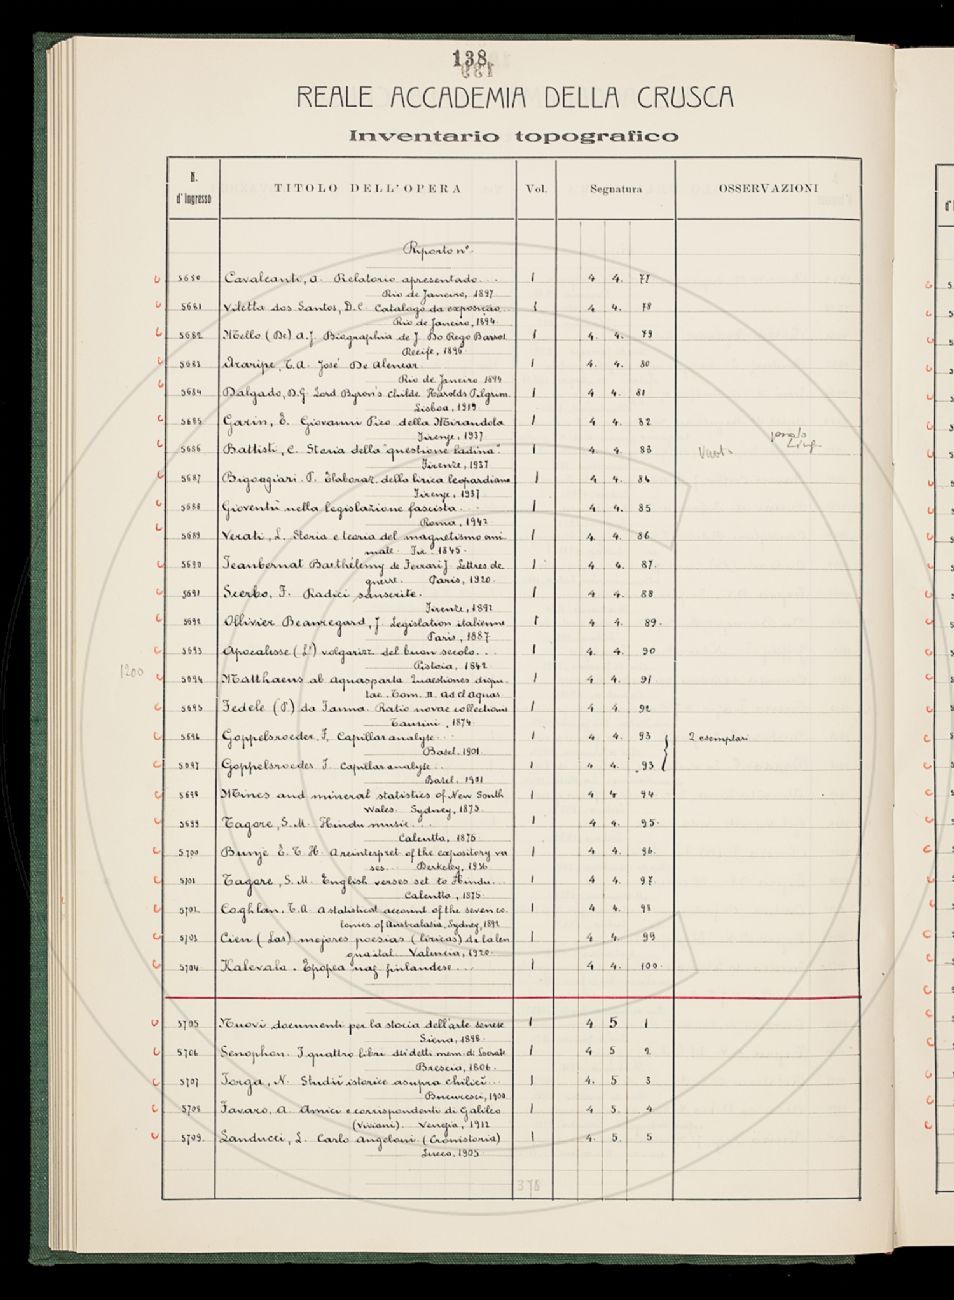 138
REALE ACCADEMIA DELLA CRUSCA
Inventario topografico
N. d'Ingresso TITOLO DELL'OPERA Vol. Segnatura OSSERVAZIONI
Riporto n°.
5680 Cavalcanti, A. Relatorio apresentado... 1 4 4. 77
Rio de Janeiro, 1897
5681 Viletta dos Santos, D.C. Catalogo da exposição... 1 4 4. 78
Rio de Janeiro, 1894
5682 Mello (De) A.J. Biographia de J. Do Rego Barros. 1 4. 4. 79
Recife, 1896
5683 Araripe, T.A. José De Alencar. 1 4. 4. 80
Rio de Janeiro 1894
5684 Dalgado, D.G. Lord Byron's Childe Harold's Pilgrim. 1 4 4. 81
Lisboa, 1919
5685 Garin, E. Giovanni Pico della Mirandola 1 4 4. 82
Firenze, 1937
5686 Battisti, C. Storia della "questione ladina". 1 4 4. 83
Firenze, 1937
5687 Bigongiari. P. Elaboraz. della lirica leopardiana 1 4 4. 84
Firenze, 1937
5688 Gioventù nella legislazione fascista... 1 4 4. 85
Roma, 1942
5689 Verati, L. Storia e teoria del magnetismo ani 1 4. 4. 86
male. Fir. 1845.
5690 Jeanbernat Barthélemy de Ferrari J. Lettres de 1 4 4. 87.
guerre. Paris, 1920.
5691 Scerbo, F. Radici sanscrite. 1 4 4. 88
Firenze, 1892
5692 Ollivier Beauregard, J. Legislation italienne 1 4 4. 89.
Paris, 1887
5693 Apocalisse (L') volgarizz. del buon secolo... 1 4. 4. 90
Pistoia, 1842
1200
5694 Matthaeus ab Aquasparta Quaestiones dispu- 1 4 4. 91
tae. Tom. II. Ad d'aquas
5695 Fedele (P.) da Fanna. Ratio novae collectionis 1 4 4. 92
Taurini, 1874
5696 Goppelsroeder, F. Capillaranalyse... 1 4 4. 93 2 esemplari
Basel. 1901
5697 Goppelsroeder F. Capillaranalyse... 1 4 4. 93
Basel. 1901
5698 Mines and mineral statistics of New South 1 4 4 94
Wales. Sydney, 1875
5699 Tagore, S.M. Hindu music... 1 4 4. 95.
Calcutta, 1875
5700 Bunje E.T.H. A reinterpret. of the expository ver 1 4 4. 96.
ses... Berkeley, 1936
5701 Tagore, S.M. English verses set to Hindu... 1 4 4. 97
Calcutta, 1875
5702 Coghlan. T.A. A statistical account of the seven co. 1 4 4. 98
lonies of Australasia, Sydney, 1892
5703 Cien (Las) mejores poesias (liricas) de la len 1 4 4. 99
gua ital. Valencia, 1920.
5704 Kalevala. Epopea naz. finlandese... 1 4 4. 100.
5705 Nuovi documenti per la storia dell'arte senese 1 4 5 1
Siena, 1898.
5706 Senophon. I quattro libri dei detti mem. di Socrate 1 4 5 2
Brescia, 1806.
5707 Iorga, N. Studii istorice asupra chiliei... 1 4. 5 3
Bucuresci, 1900
5708 Favaro, A. Amici e corrispondenti di Galileo 1 4 5. 4
(Viviani). Venezia, 1912
5709. Landucci, L. Carlo Angeloni (Cronistoria) 1 4. 5. 5
Lucca, 1905
378